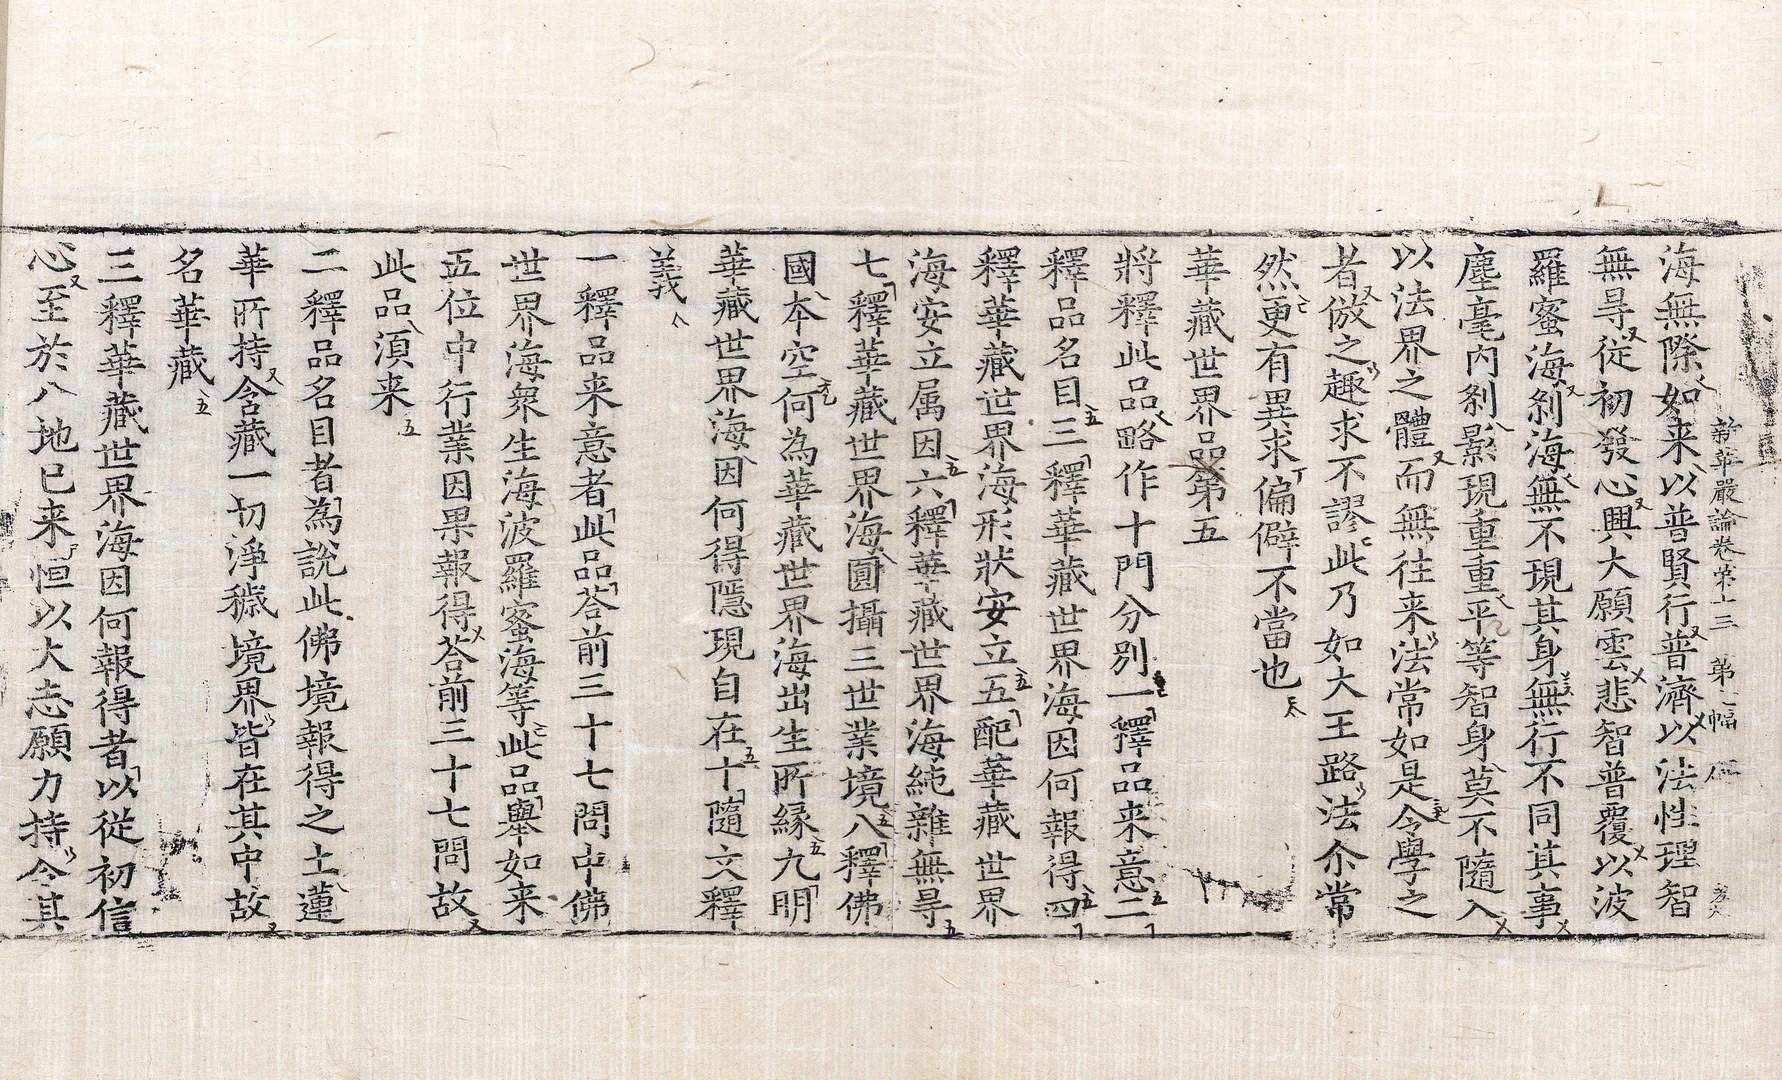 新華嚴論卷第十三 第二幅
海無際如来以普賢行普濟以法性理智
無㝵従初發心興大願雲悲智普覆以波
羅蜜海剎海無不現其身無行不同其事
塵毫内剎影現重重平等智身莫不隨入
以法界之體而無往来法常如是令學之
者倣之趣求不謬此乃如大王路法尒常
然更有異求偏僻不當也
華藏世界品第五
將釋此品略作十門分別一釋品来意二
釋品名目三釋華藏世界海因何報得四
釋華藏世界海形狀安立五配華藏世界
海安立属因六釋華藏世界海純雜無㝵
七釋華藏世界海圎攝三世業境八釋佛
國本空何為華藏世界海出生所縁九明
華藏世界海因何得隱現自在十隨文釋
義
一釋品来意者此品荅前三十七問中佛
世界海衆生海波羅蜜海等此品舉如来
五位中行業因果報得荅前三十七問故
此品湏来
二釋品名目者為說此佛境報得之土蓮
華所持含藏一切淨穢境界皆在其中故
名華藏
三釋華藏世界海因何報得者以從初信
心至於八地已来恒以大志願力持令其